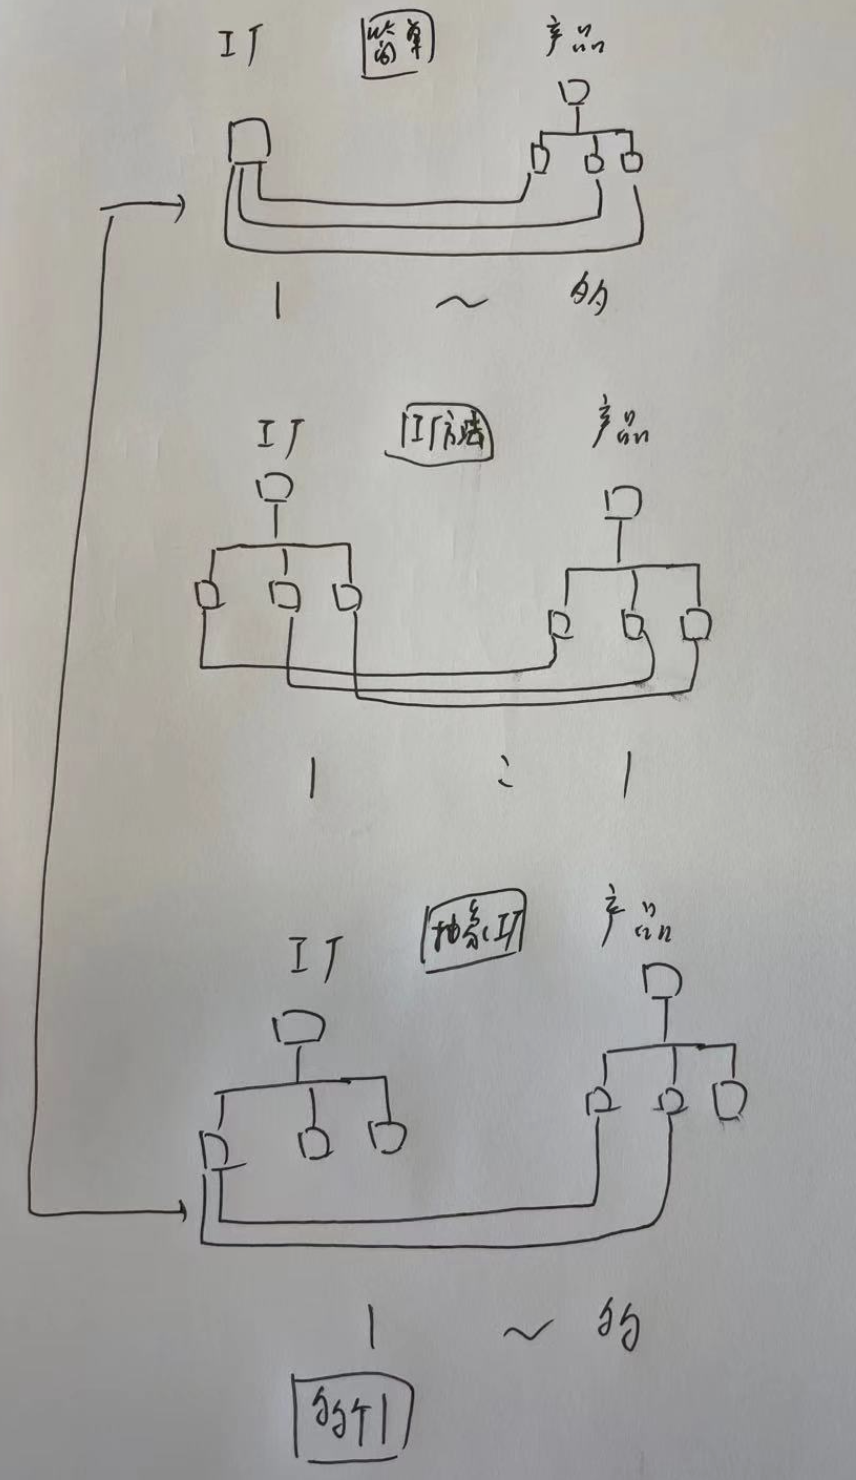 工厂 简单 产品
1 ~ 多
工厂 工厂方法 产品
1 : 1
工厂 抽象工厂 产品
1 ~ 多
多个1